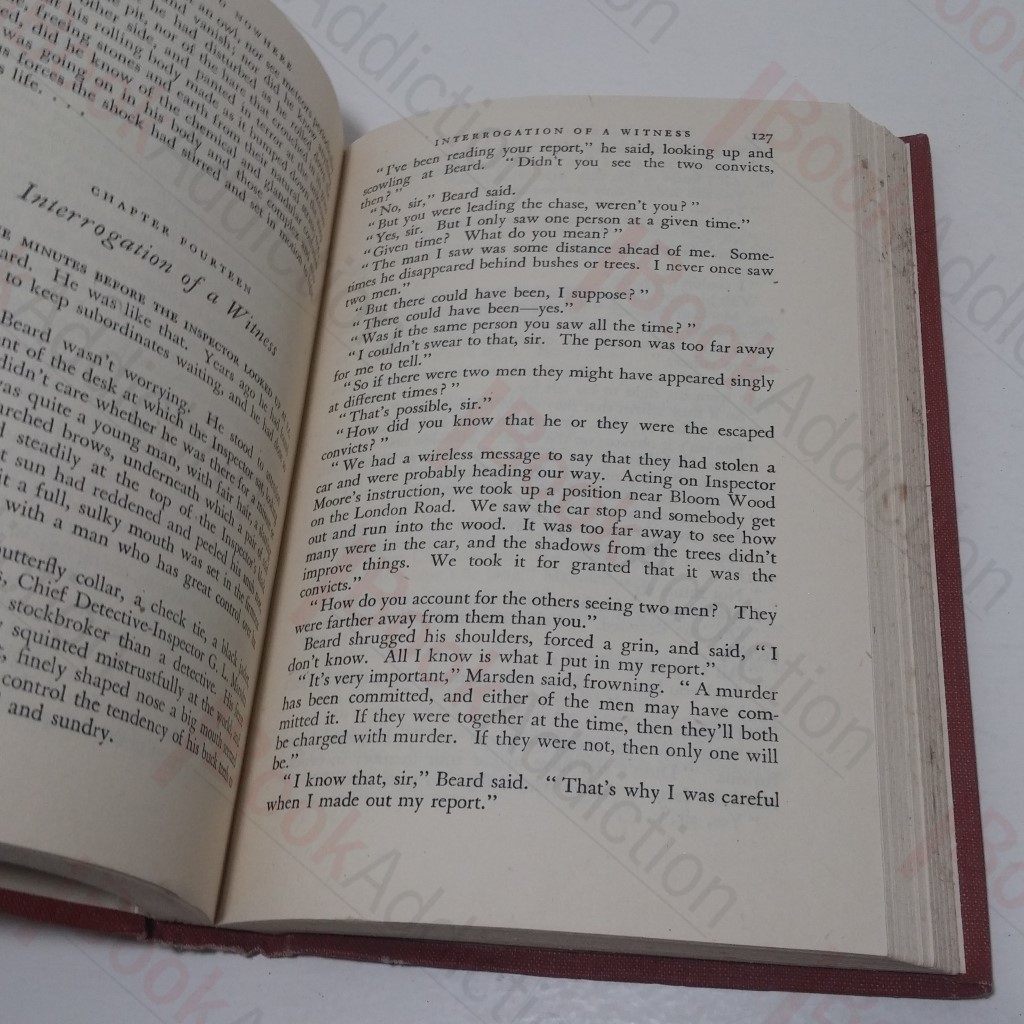 TO NOWHERE
an owl, nor see
and vanish; nor did he know
he had disturbed as he rolled
pit, nor of the hare that crouched
other side, and panted in terror at the
his rolling body made as it bumped down
freeing stones and earth from their
did he know of the chemical and natural
was going on in his body and glands; those complex
forces the shock had stirred and set in motion
life. . . .
CHAPTER FOURTEEN
Interrogation of a Witness
MINUTES BEFORE THE INSPECTOR LOOKED UP
He was like that. Years ago he had
to keep subordinates waiting, and he had
Beard wasn't worrying. He stood to
of the desk at which the Inspector sat
didn't care whether he was there for a
was quite a young man, with fair hair, a
arched brows, underneath which a pair of
steadily at the top of the Inspector's
sun had reddened and peeled his
a full, sulky mouth was set in the
with a man who has great control over
butterfly collar, a check tie, a black jacket
Chief Detective-Inspector G. L.
stockbroker than a detective. His
squinted mistrustfully at the world, and
finely shaped nose a big mouth
control the tendency of his buck teeth to
and sundry.
INTERROGATION OF A WITNESS 127
"I've been reading your report," he said, looking up and
scowling at Beard. "Didn't you see the two convicts,
then?"
"No, sir," Beard said.
"But you were leading the chase, weren't you?"
"Yes, sir. But I only saw one person at a given time."
"Given time? What do you mean?"
"The man I saw was some distance ahead of me. Some-
times he disappeared behind bushes or trees. I never once saw
two men."
"But there could have been, I suppose?"
"There could have been—yes."
"Was it the same person you saw all the time?"
"I couldn't swear to that, sir. The person was too far away
for me to tell."
"So if there were two men they might have appeared singly
at different times?"
"That's possible, sir."
"How did you know that he or they were the escaped
convicts?"
"We had a wireless message to say that they had stolen a
car and were probably heading our way. Acting on Inspector
Moore's instruction, we took up a position near Bloom Wood
on the London Road. We saw the car stop and somebody get
out and run into the wood. It was too far away to see how
many were in the car, and the shadows from the trees didn't
improve things. We took it for granted that it was the
convicts."
"How do you account for the others seeing two men? They
were farther away from them than you."
Beard shrugged his shoulders, forced a grin, and said, "I
don't know. All I know is what I put in my report."
"It's very important," Marsden said, frowning. "A murder
has been committed, and either of the men may have com-
mitted it. If they were together at the time, then they'll both
be charged with murder. If they were not, then only one will
be."
"I know that, sir," Beard said. "That's why I was careful
when I made out my report."